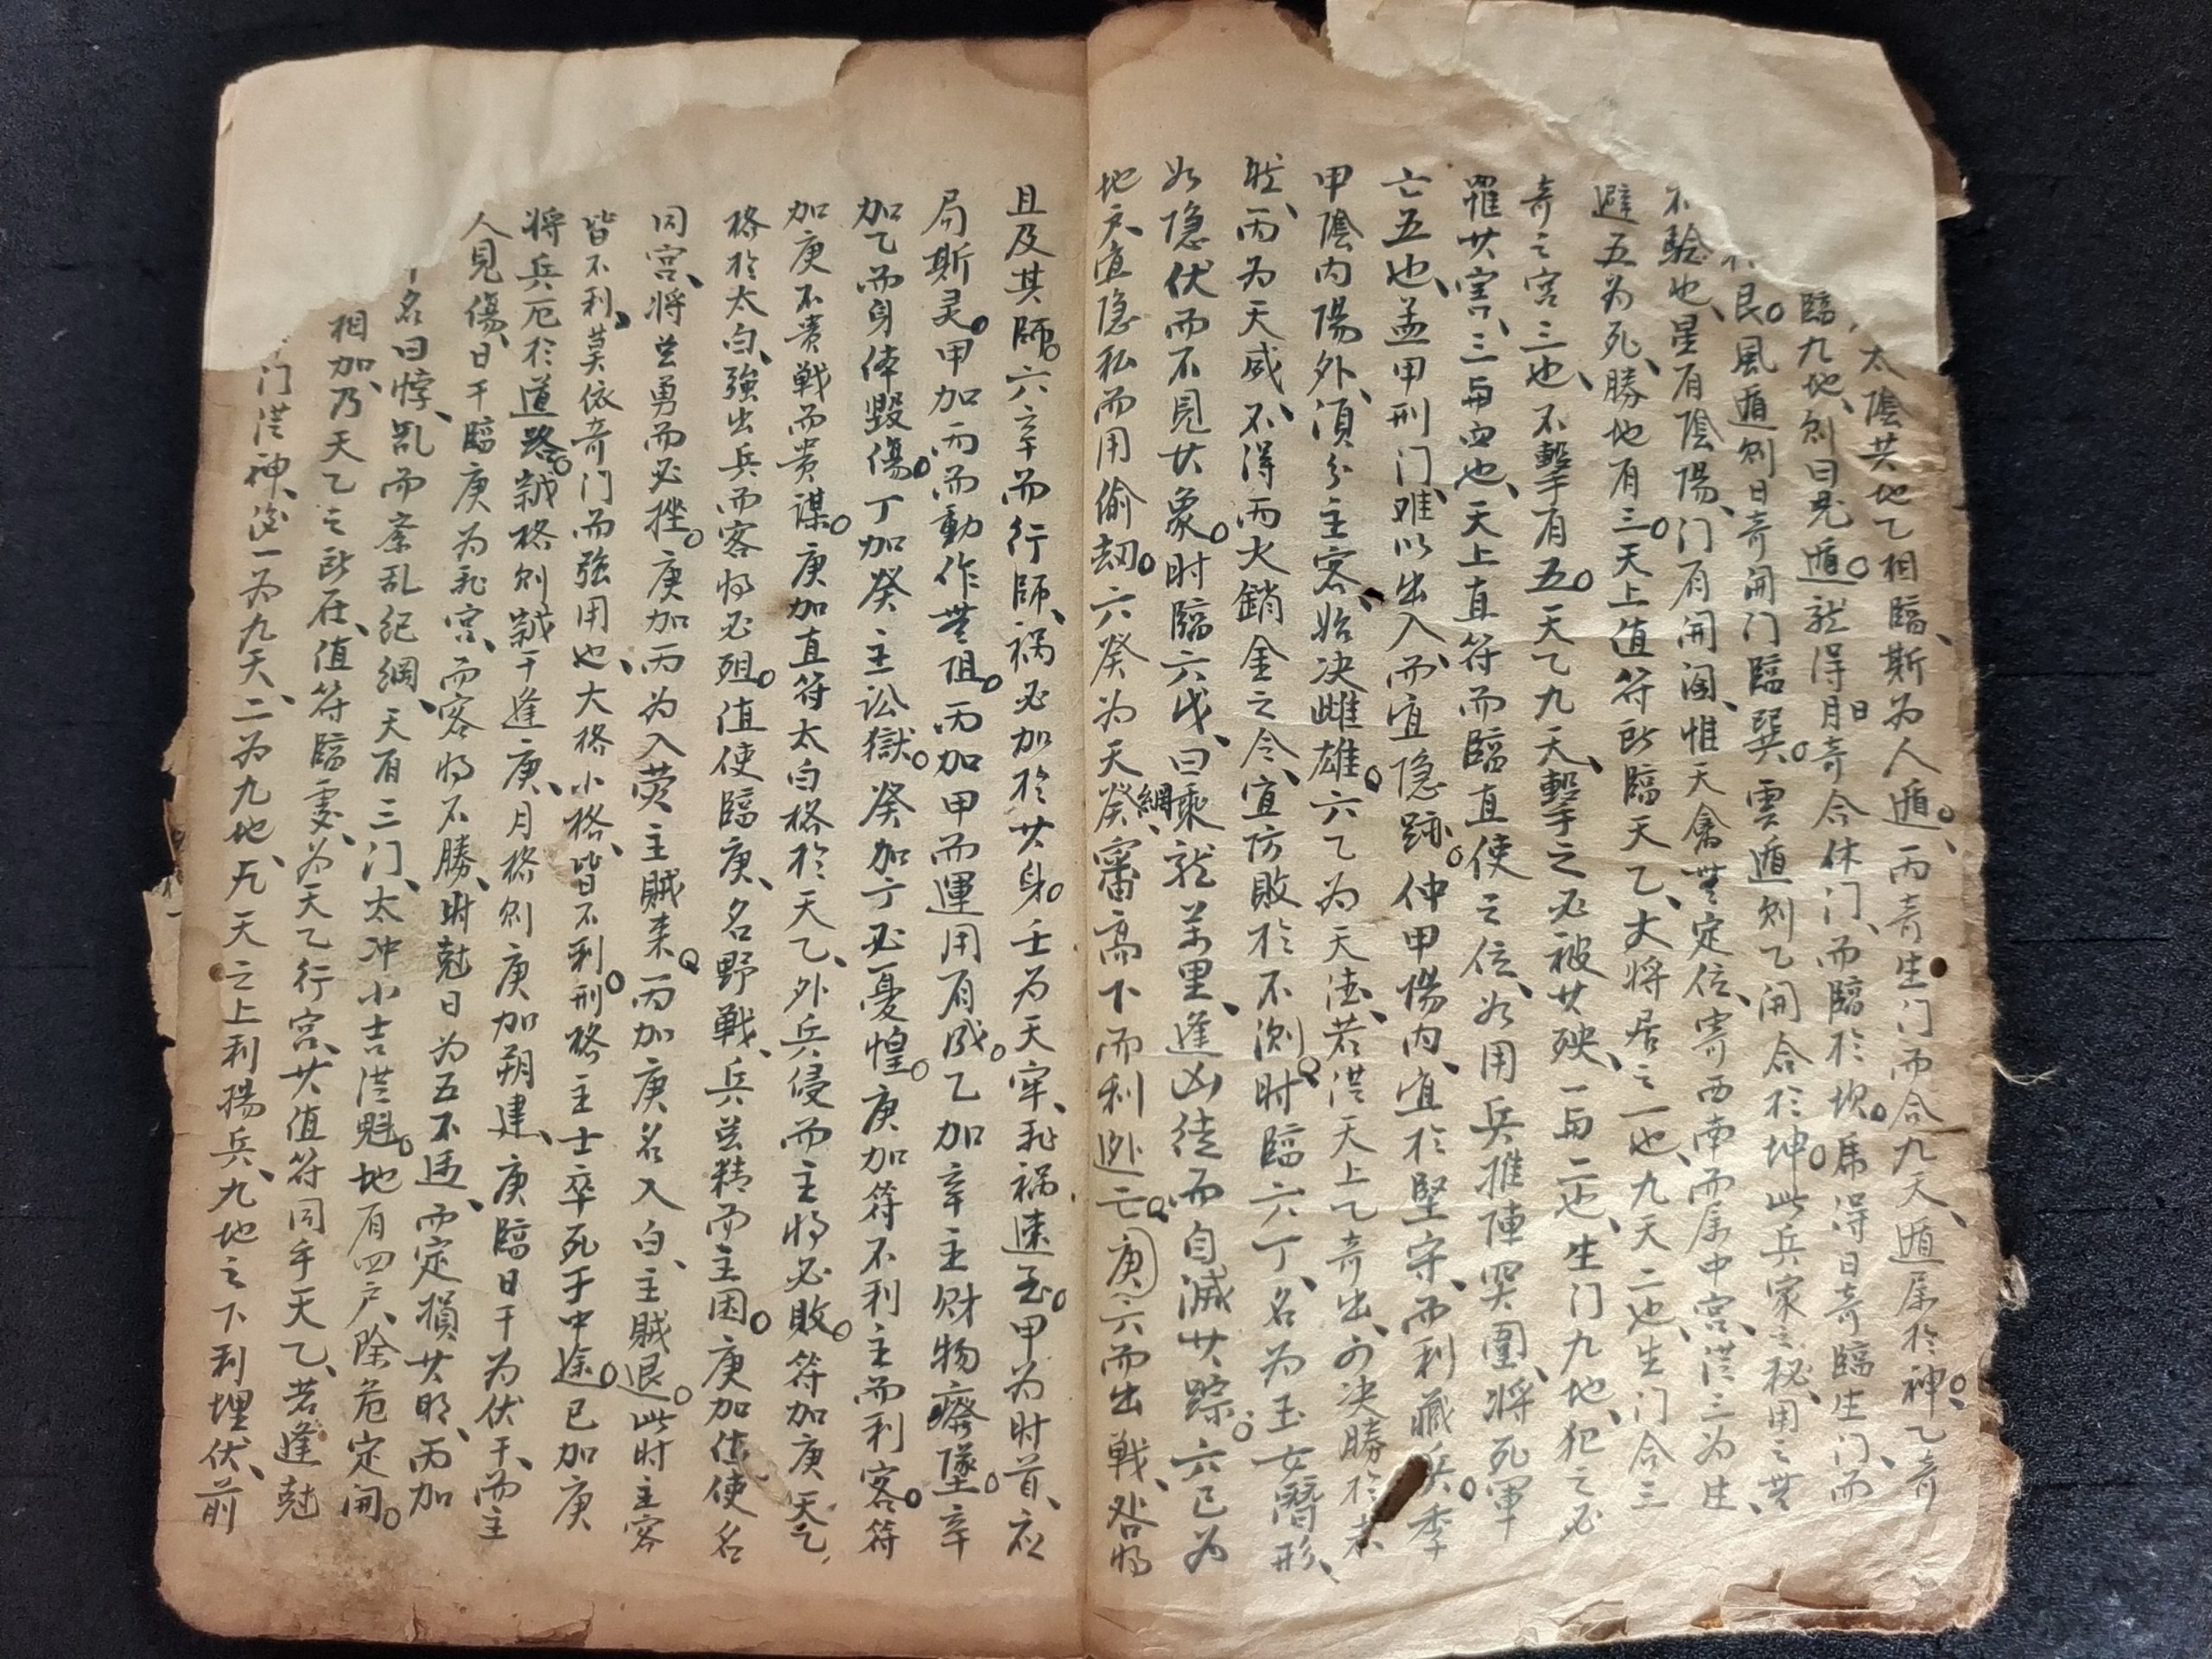 太陰共地乙相臨、斯为人遁。丙奇生门而合九天、遁属於神。乙奇
臨九地、则曰鬼遁。龙得日月奇合休门、而臨於坎。虎得日奇臨生门、而
艮。風遁则日奇開门臨巽。雲遁则乙開合於坤。此兵家之秘、用之無
不驗也、星有陰陽、门有開阖、惟天禽無定位、寄西南而属中宫、從三为生、
避五为死、勝地有三。天上值符所臨天乙、大将居之一也、九天二也、生门合三
奇之宫三也、不擊有五。天乙九天、擊之必被其殃、一与二也、生门九地、犯之必
罹其害、三与四也、天上直符而臨直使之位、如用兵推陣突圍、将死軍
亡五也、盖甲刑门、难以出入、而宜隐跡。仲甲陽内、宜於堅守、而利藏兵。季
甲陰内陽外、須分主客、始决雌雄。六乙为天德、若從天上乙奇出、可决勝於未
然、丙为天威、不得而火銷金之令、宜防敗於不測。时臨六丁、名为玉女潛形、
如隐伏而不見其象。时臨六戊、曰乘龙萬里、逢凶徒而自滅其踪。六己为
地户、宜隐私而用偷劫。六癸为天網、審高下而利逃亡。庚六而出戰、咎将
且及其師。六辛而行師、祸必加於其身。壬为天牢、耻祸速至。甲为时首、应
局斯灵。甲加丙而動作無阻。丙加甲而運用有成。乙加辛主财物癈墜。辛
加乙而身体毁傷。丁加癸主訟獄。癸加丁必憂惶。庚加符不利主而利客。符
加庚不贵戰而贵谋。庚加直符太白格於天乙、外兵侵而主将必敗。符加庚天乙
格於太白、強出兵而客将必殂。值使臨庚、名野戰、兵並精而主困。庚加值使名
同宫、将並勇而必挫。庚加丙为入荧主賊来。丙加庚名入白、主賊退。此时主客
皆不利、莫依奇门而強用也、大格小格、皆不利。刑格主士卒死于中途。己加庚
将兵厄於道路。歲格则歲干逢庚、月格则庚加朔建、庚臨日干为伏干、而主
人見傷、日干臨庚为飛宫、而客将不勝、时尅日为五不遇、而定損其明、丙加
名曰悖、乱而紊乱纪綱、天有三门、太冲小吉從魁。地有四户、除危定開。
相加、乃天乙之所在、值符臨宫、为天乙行宫、其值符同乎天乙、若逢尅
门從神、後一为九天、二为九地、凡天之上利揚兵、九地之下利埋伏、前